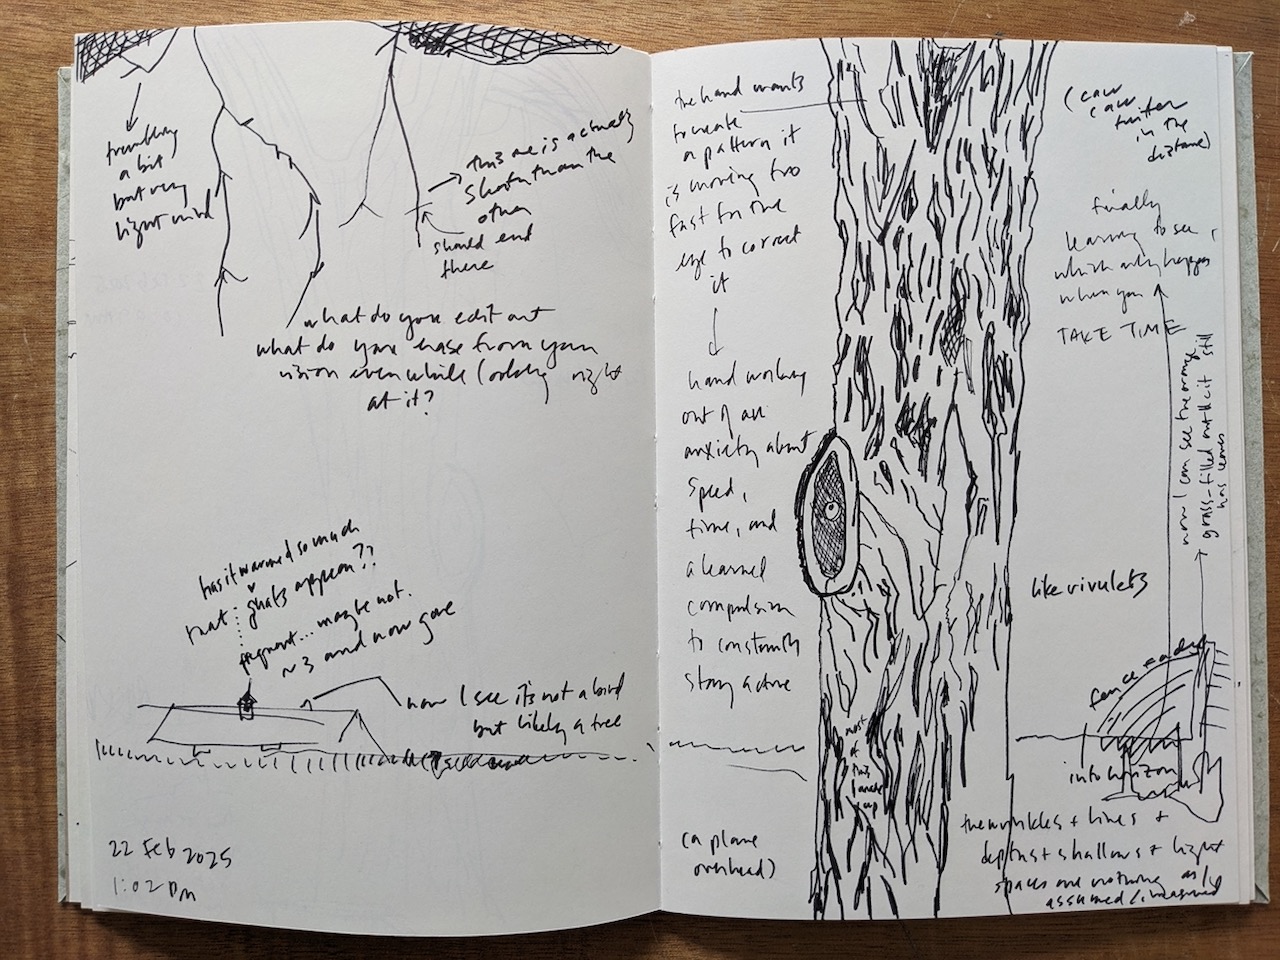 trembling
a bit
but very
light wind
this one is actually
shorter than the
other
should end
there
what do you edit out
what do you erase from your
vision even while looking right
at it?
has it warmed so much
that gnats appear??
fragment... maybe not.
~3 and now gone
now I see it's not a bird
but likely a tree
22 Feb 2025
1:02 pm
the hand wants
to create
a pattern it
is moving too
fast for the
eye to correct
it
hand working
out of an
anxiety about
speed,
time, and
a learned
compulsion
to constantly
stay active
(a plane
overhead)
most
of
this
I made
up
(caw
caw
twitter
in the
distance)
finally
learning to see,
which only happens
when you
TAKE TIME
now I can see the
grass-filled out bc it still
has leaves
like rivulets
fence
into horizon
the wrinkles + lines +
depths + shallows + light
spaces are nothing as I
assumed/imagined